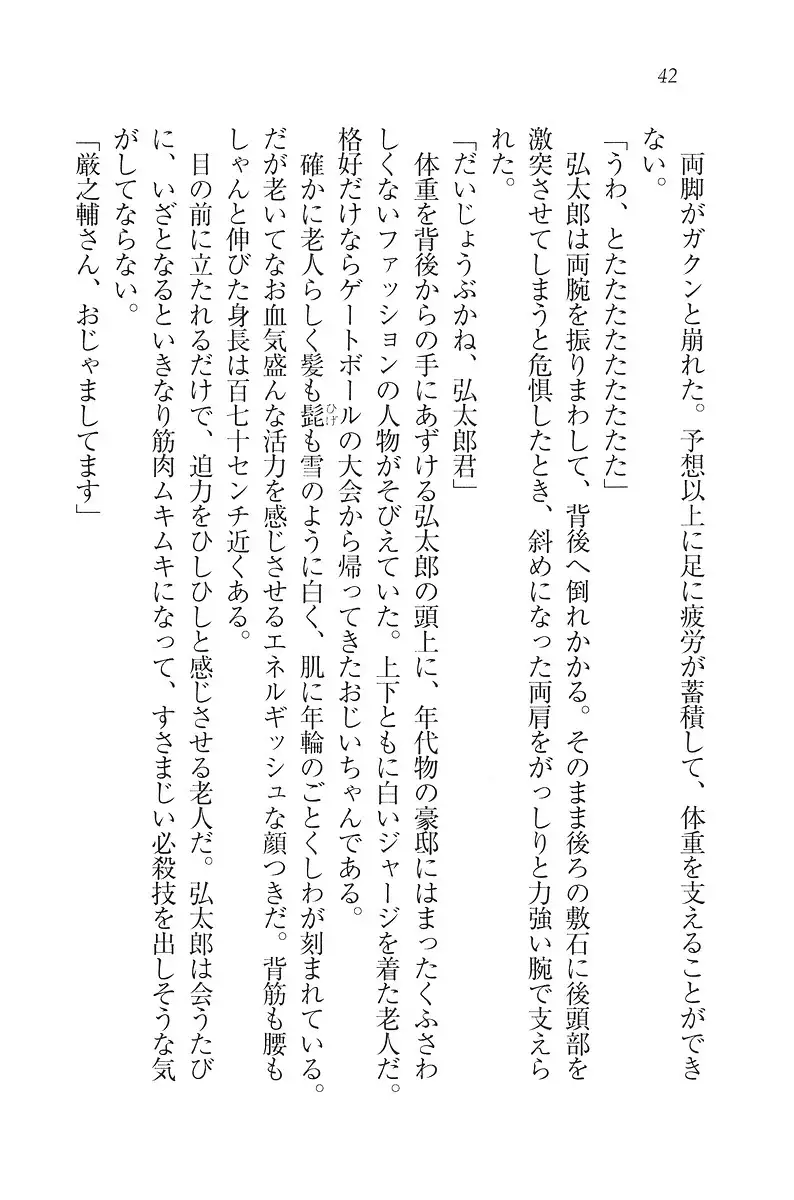 42
両脚がガクンと崩れた。予想以上に足に疲労が蓄積して、体重を支えることができ
ない。
「うわ、とたたたたたたたた」
弘太郎は両腕を振りまわして、背後へ倒れかかる。そのまま後ろの敷石に後頭部を
激突させてしまうと危惧したとき、斜めになった両肩をがっしりと力強い腕で支えら
れた。
「だいじょうぶかね、弘太郎君」
体重を背後からの手にあずける弘太郎の頭上に、年代物の豪邸にはまったくふさわ
しくないファッションの人物がそびえていた。上下ともに白いジャージを着た老人だ。
格好だけならゲートボールの大会から帰ってきたおじいちゃんである。
確かに老人らしく髪も髭も雪のように白く、肌に年輪のごとくしわが刻まれている。
だが老いてなお血気盛んな活力を感じさせるエネルギッシュな顔つきだ。背筋も腰も
しゃんと伸びた身長は百七十センチ近くある。
目の前に立たれるだけで、迫力をひしひしと感じさせる老人だ。弘太郎は会うたび
に、いざとなるといきなり筋肉ムキムキになって、すさまじい必殺技を出しそうな気
がしてならない。
「厳之輔さん、おじゃましてます」
ひげ